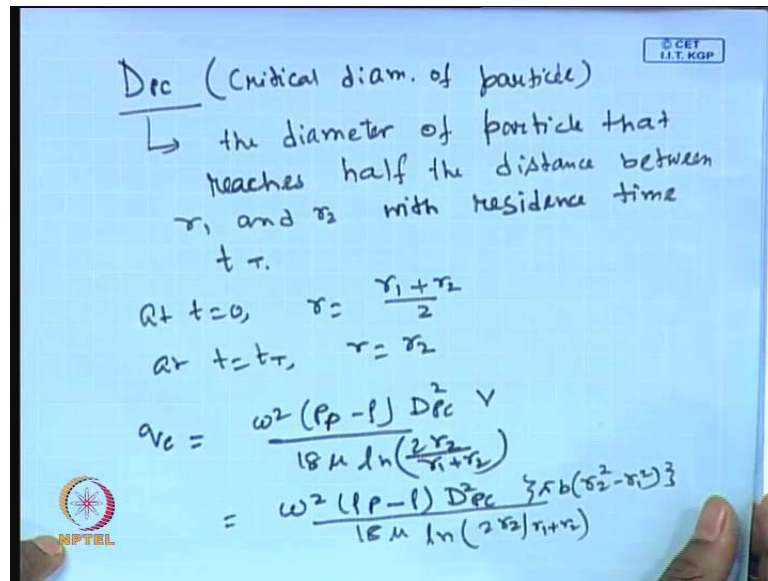 © CET
I.I.T. KGP
Dpc (Critical diam. of particle)
↳ the diameter of particle that
reaches half the distance between
r₁ and r₂ with residence time
t_T.
at t=0, r = (r₁ + r₂)/2
at t=t_T, r = r₂
q_c = ω² (ρp - ρ) D²pc V / 18 μ ln(2r₂/(r₁+r₂))
= ω² (ρp - ρ) D²pc {πb(r₂² - r₁²)} / 18 μ ln(2r₂/r₁+r₂)
NPTEL